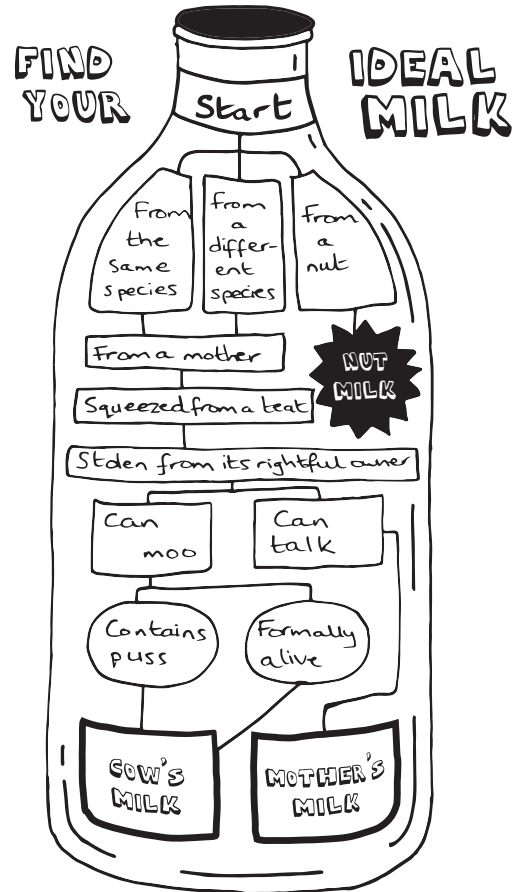 FIND
YOUR
IDEAL
MILK
Start
From
the
same
species
from
a
differ-
ent
species
From
a
nut
From a mother
NUT
MILK
Squeezed from a teat
Stolen from its rightful owner
Can
moo
Can
talk
Contains
puss
Formally
alive
COW'S
MILK
MOTHER'S
MILK